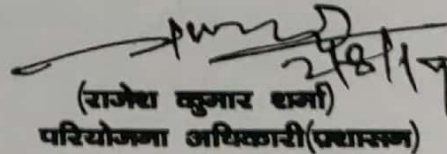 2/8/19
(राजेश कुमार शर्मा)
परियोजना अधिकारी(प्रशासन)